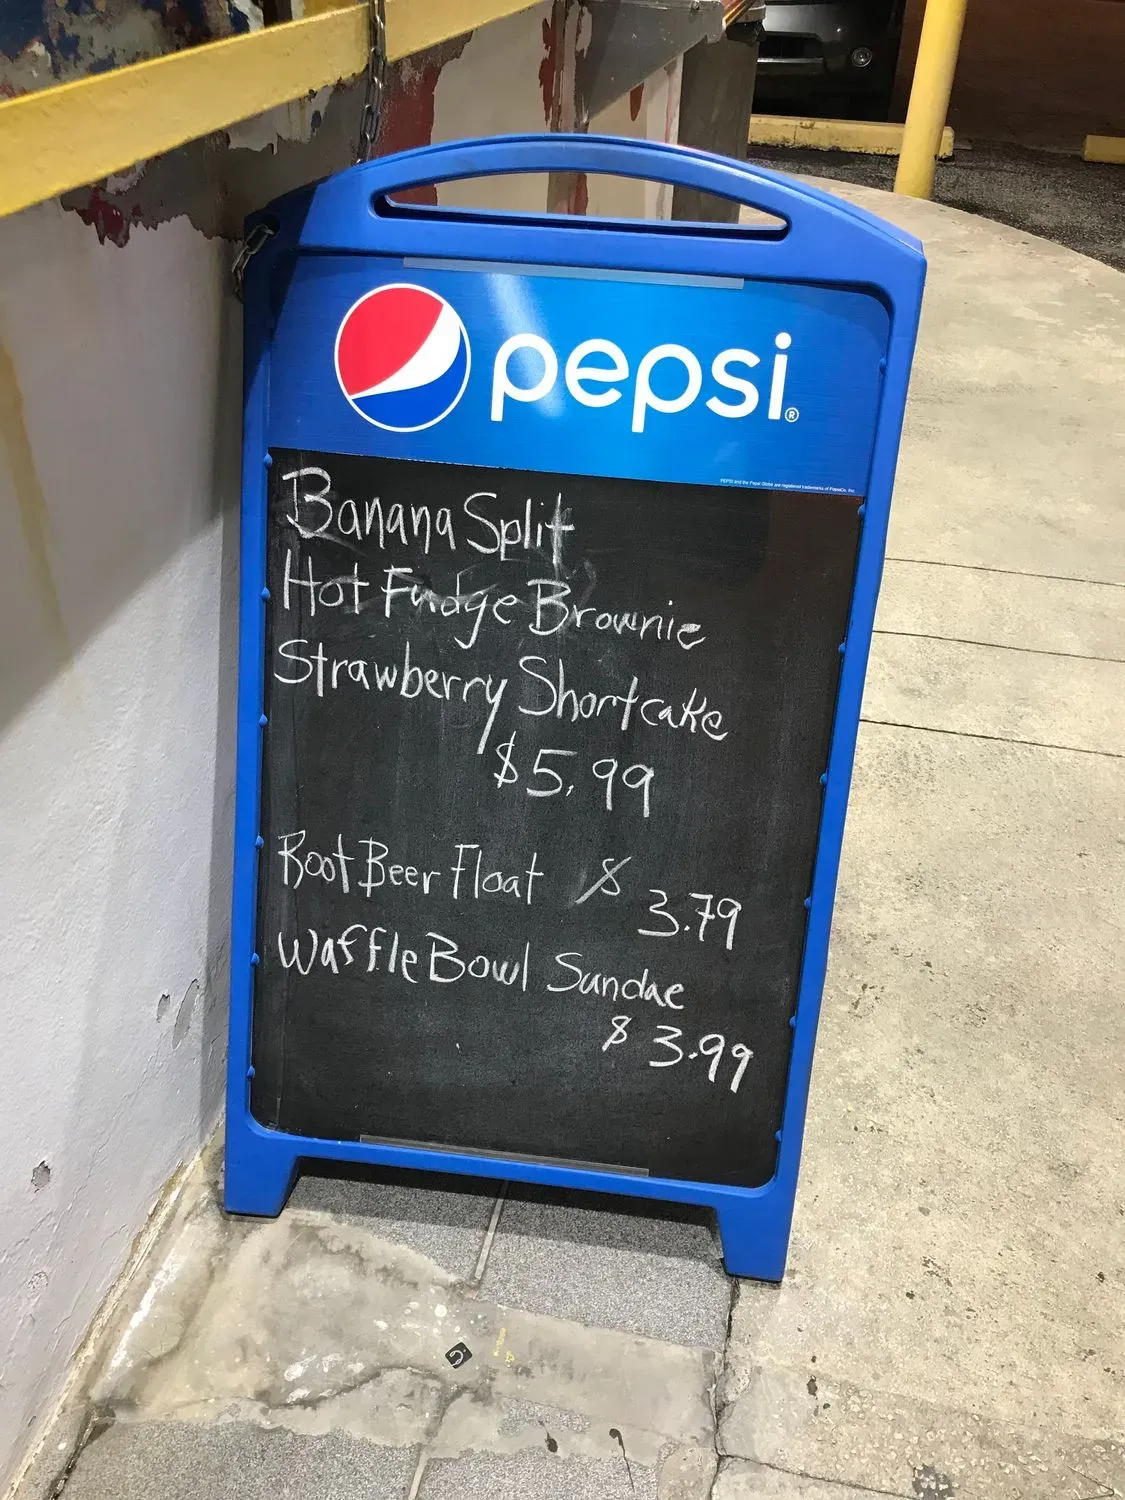 pepsi®
PEPSI and the Pepsi Globe are registered trademarks of PepsiCo, Inc.
Banana Split
Hot Fudge Brownie
Strawberry Shortcake
$5.99
Root Beer Float $3.79
Waffle Bowl Sundae
$3.99